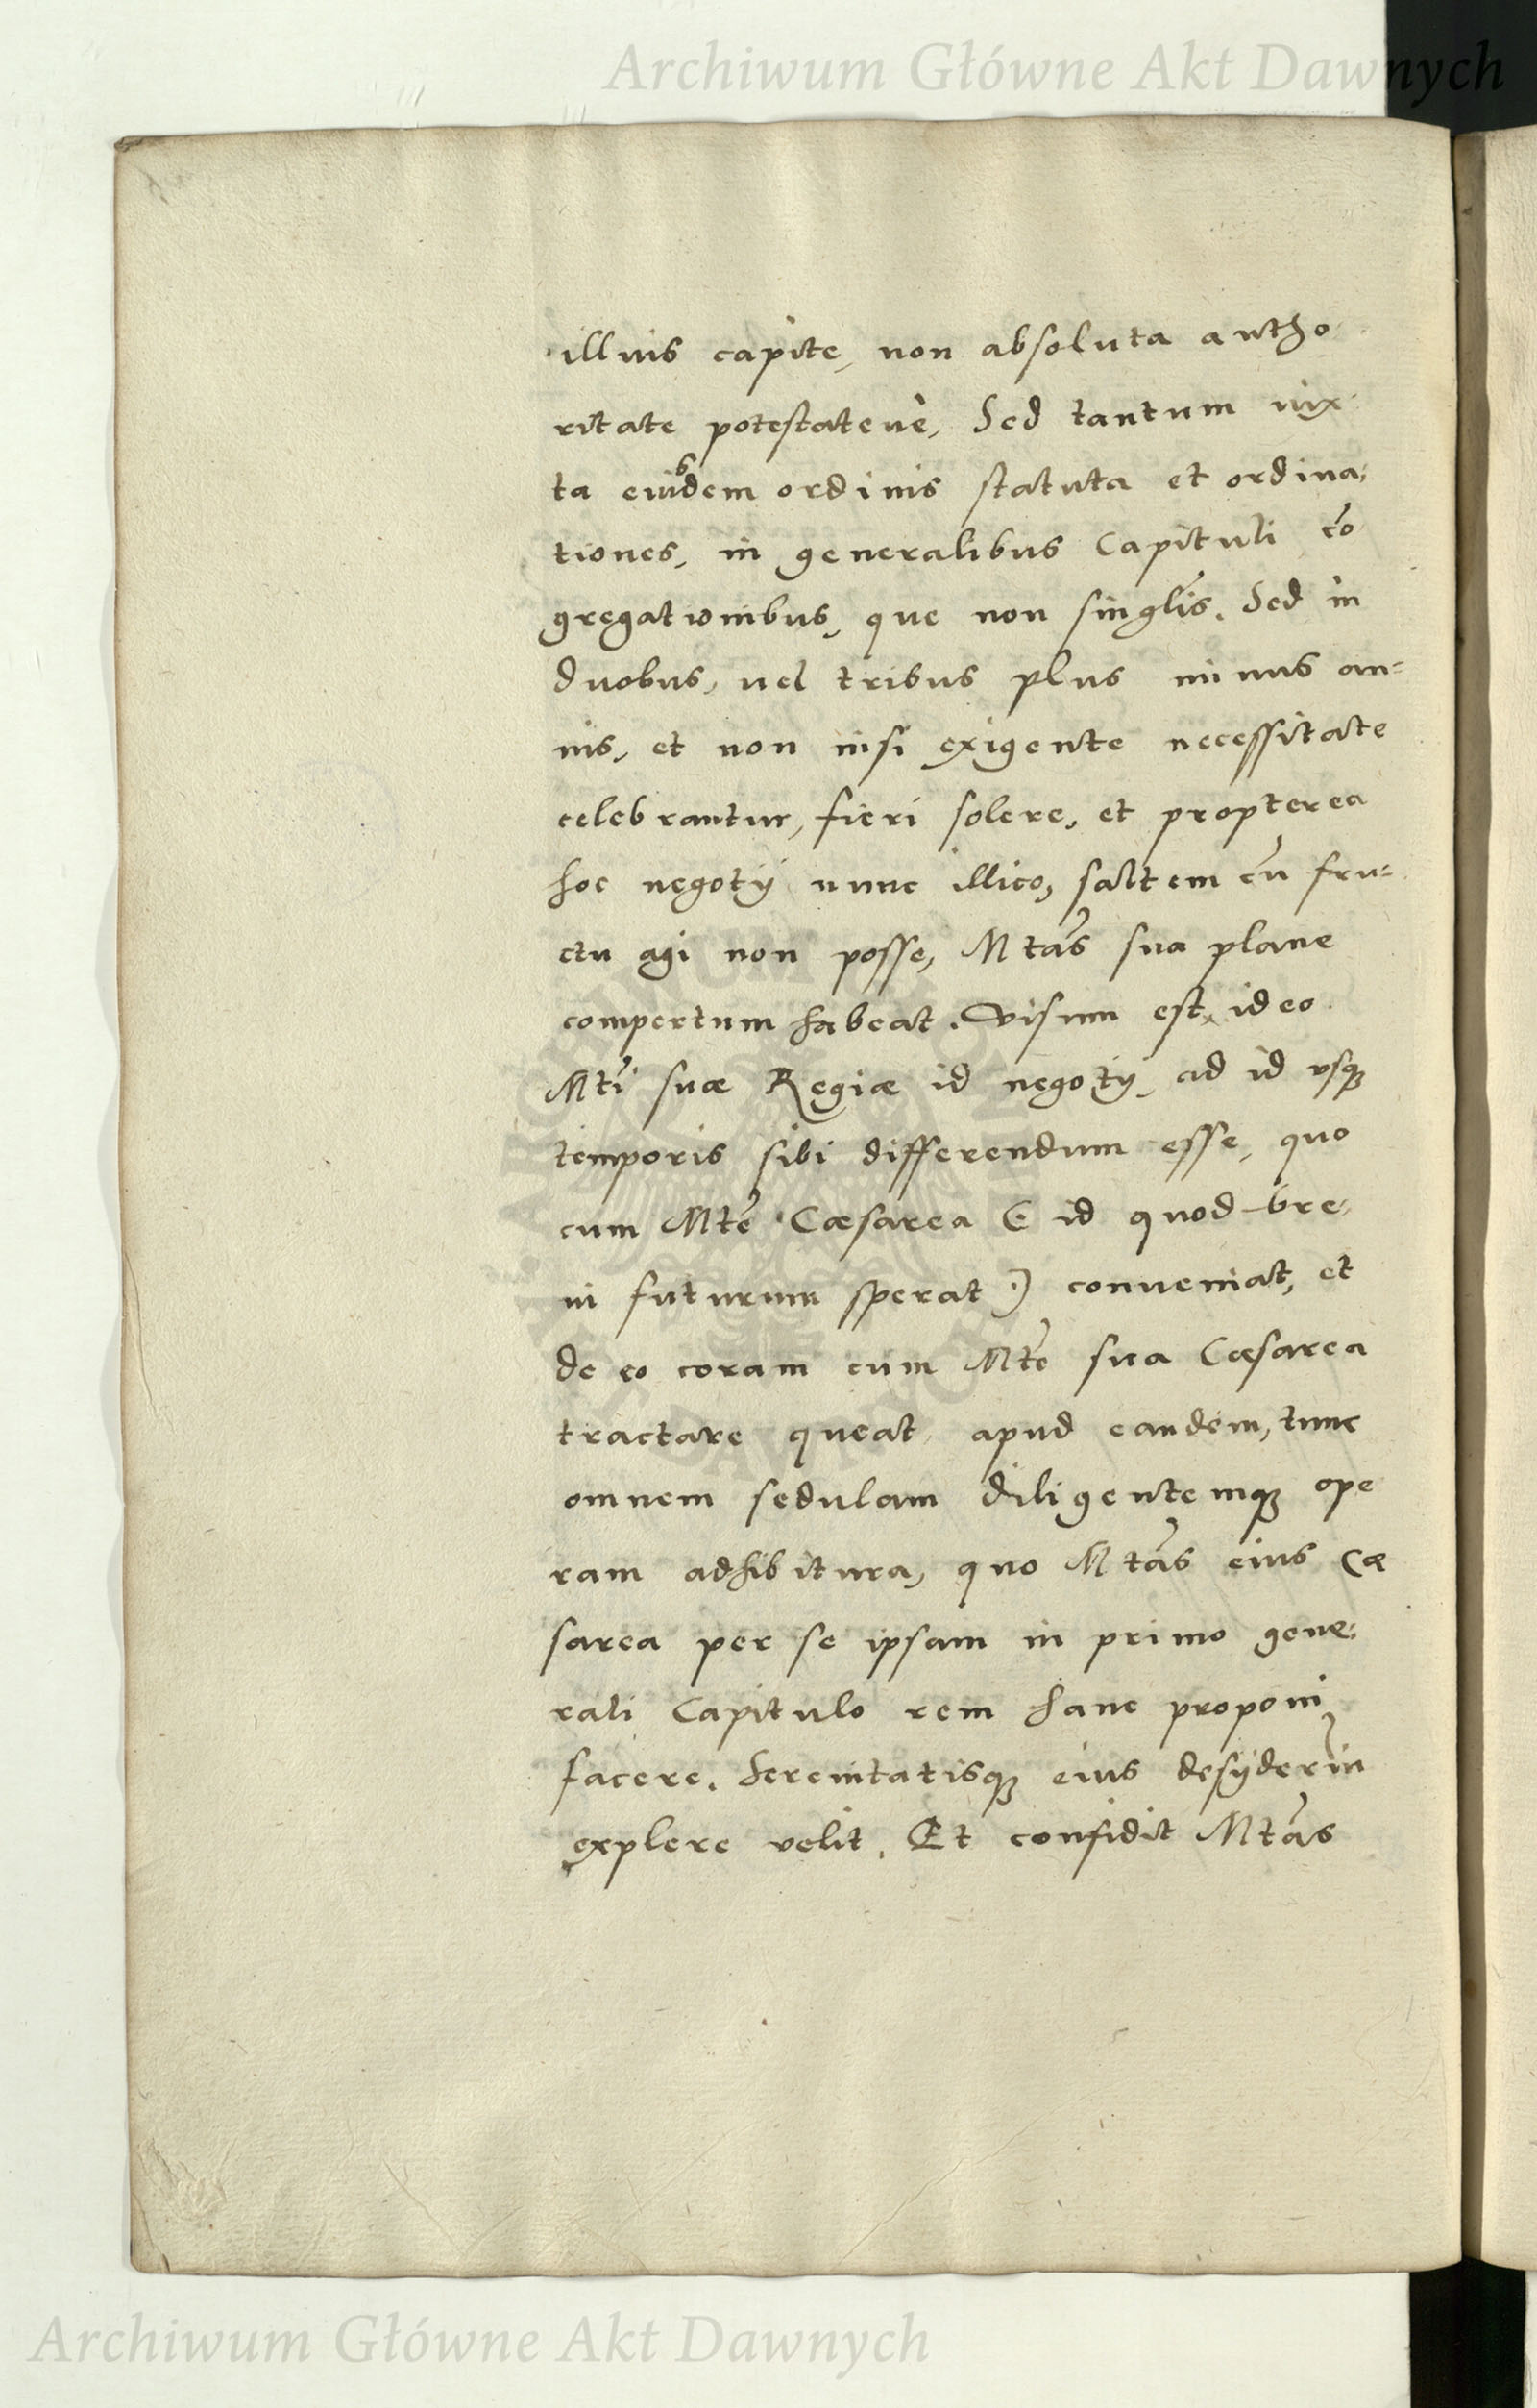 Archiwum Główne Akt Dawnych
illius capite, non absoluta autho
ritate potestateue, Sed tantum iux
ta eiusdem ordinis statuta et ordina,
tiones, in generalibus Capituli cō
gregationibus, que non singlis. Sed in
duobus, uel tribus plus minus an=
nis, et non nisi exigente necessitate
celebrantur, fieri solere, et propterea
hoc negotij nunc illico, saltem cū fru=
ctu agi non posse, Mtās sua plane
compertum habeat. Visum est ideo
Mtī suæ Regiæ id negotij, ad id vsq3
temporis sibi differendum esse, quo
cum Mtē Cæsarea (: id quod bre,
ui futurum sperat :) conueniat, et
de eo coram cum Mtē sua Cæsarea
tractare queat, apud eandem, tunc
omnem sedulam diligentemq3 ope
ram adhibitura, quo Mtās eius Cæ
sarea per se ipsam in primo gene,
rali Capitulo rem hanc proponi
facere, Serenitatisq3 eius desyderiū
explere velit. Et confidit Mtās
Archiwum Główne Akt Dawnych